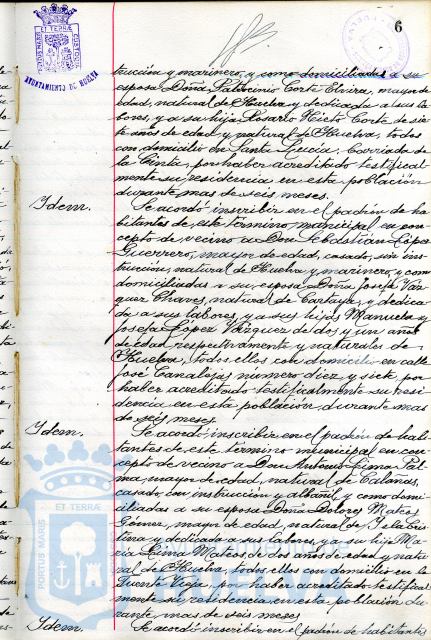 6
PORTUS MARIS ET TERRÆ CUSTODIA
AYUNTAMIENTO DE HUELVA
trucción y marinero, y como domiciliadas a su
esposa Doña Patrocinio Corte Elvira, mayor de
edad, natural de Huelva y dedicada a sus la-
bores, y a su hija Rosario Nieto Corte de sie-
te años de edad y natural de Huelva, todos
con domicilio en Santa Lucía, Barriada de
la Cinta, por haber acreditado testifical-
mente su residencia en esta población
durante mas de seis meses.
Idem.
Se acordó inscribir en el padrón de ha-
bitantes de este término municipal en con-
cepto de vecino a Don Sebastián López
Guerrero, mayor de edad, casado, sin ins-
trucción, natural de Huelva y marinero, y como
domiciliadas a su esposa Doña Josefa Váz-
quez Chaves, natural de Cartaya, y dedica-
da a sus labores, y a sus hijas Manuela y
Josefa López Vázquez de dos y un años
de edad respectivamente y naturales de
Huelva, todos ellos con domicilio en calle
José Canalejas número diez y siete, por
haber acreditado testificalmente su resi-
dencia en esta población, durante mas
de seis meses.
Idem.
Se acordó inscribir en el padrón de habi-
tantes de este término municipal en con-
cepto de vecino a Don Antonio Pal-
ma, mayor de edad, natural de Calañas,
casado, con instrucción y albañil, y como domi-
ciliadas a su esposa Doña Dolores Mateos
Gómez, mayor de edad, natural de Isla Cris-
tina y dedicada a sus labores, y a su hija Ma-
ría Mateos, de dos años de edad y natu-
ral de Huelva, todos ellos con domicilio en la
Fuente Vieja, por haber acreditado testifical-
mente su residencia en esta población du-
rante mas de seis meses.
Idem.
Se acordó inscribir en el padrón de habitantes
PORTUS MARIS ET TERRÆ
HUELVA